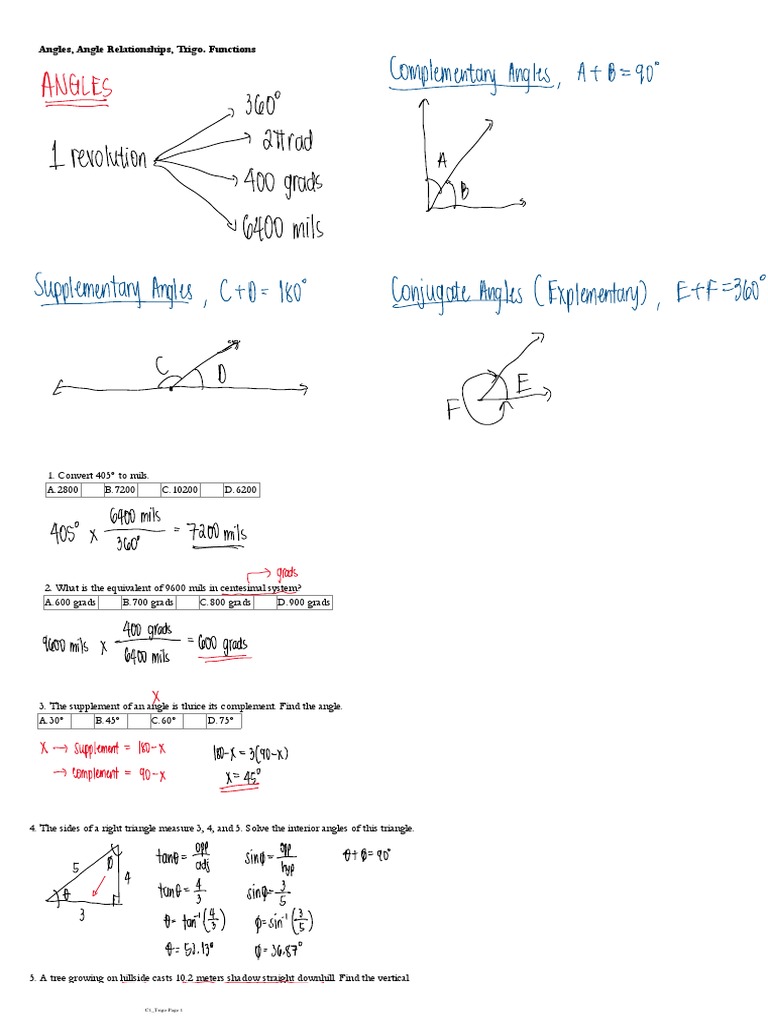 Angles, Angle Relationships, Trigo. Functions
ANGLES
1 revolution
360°
2π rad
400 grads
6400 mils
Complementary Angles, A+B=90°
A
B
Supplementary Angles, C+D=180°
C
D
Conjugate Angles (Explementary), E+F=360°
E
F
1. Convert 405° to mils.
A. 2800 B. 7200 C. 10200 D. 6200
405° x 6400 mils / 360° = 7200 mils
grads
2. What is the equivalent of 9600 mils in centesimal system?
A. 600 grads B. 700 grads C. 800 grads D. 900 grads
9600 mils x 400 grads / 6400 mils = 600 grads
x
3. The supplement of an angle is thrice its complement. Find the angle.
A. 30° B. 45° C. 60° D. 75°
x → supplement = 180-x
→ complement = 90-x
180-x = 3(90-x)
x = 45°
4. The sides of a right triangle measure 3, 4, and 5. Solve the interior angles of this triangle.
5
4
3
θ
φ
tanθ = opp/adj
tanθ = 4/3
θ = tan⁻¹(4/3)
θ = 53.13°
sinφ = opp/hyp
sinφ = 3/5
φ = sin⁻¹(3/5)
φ = 36.87°
θ + φ = 90°
5. A tree growing on hillside casts 10.2 meters shadow straight downhill. Find the vertical
C1_Trigo Page 1